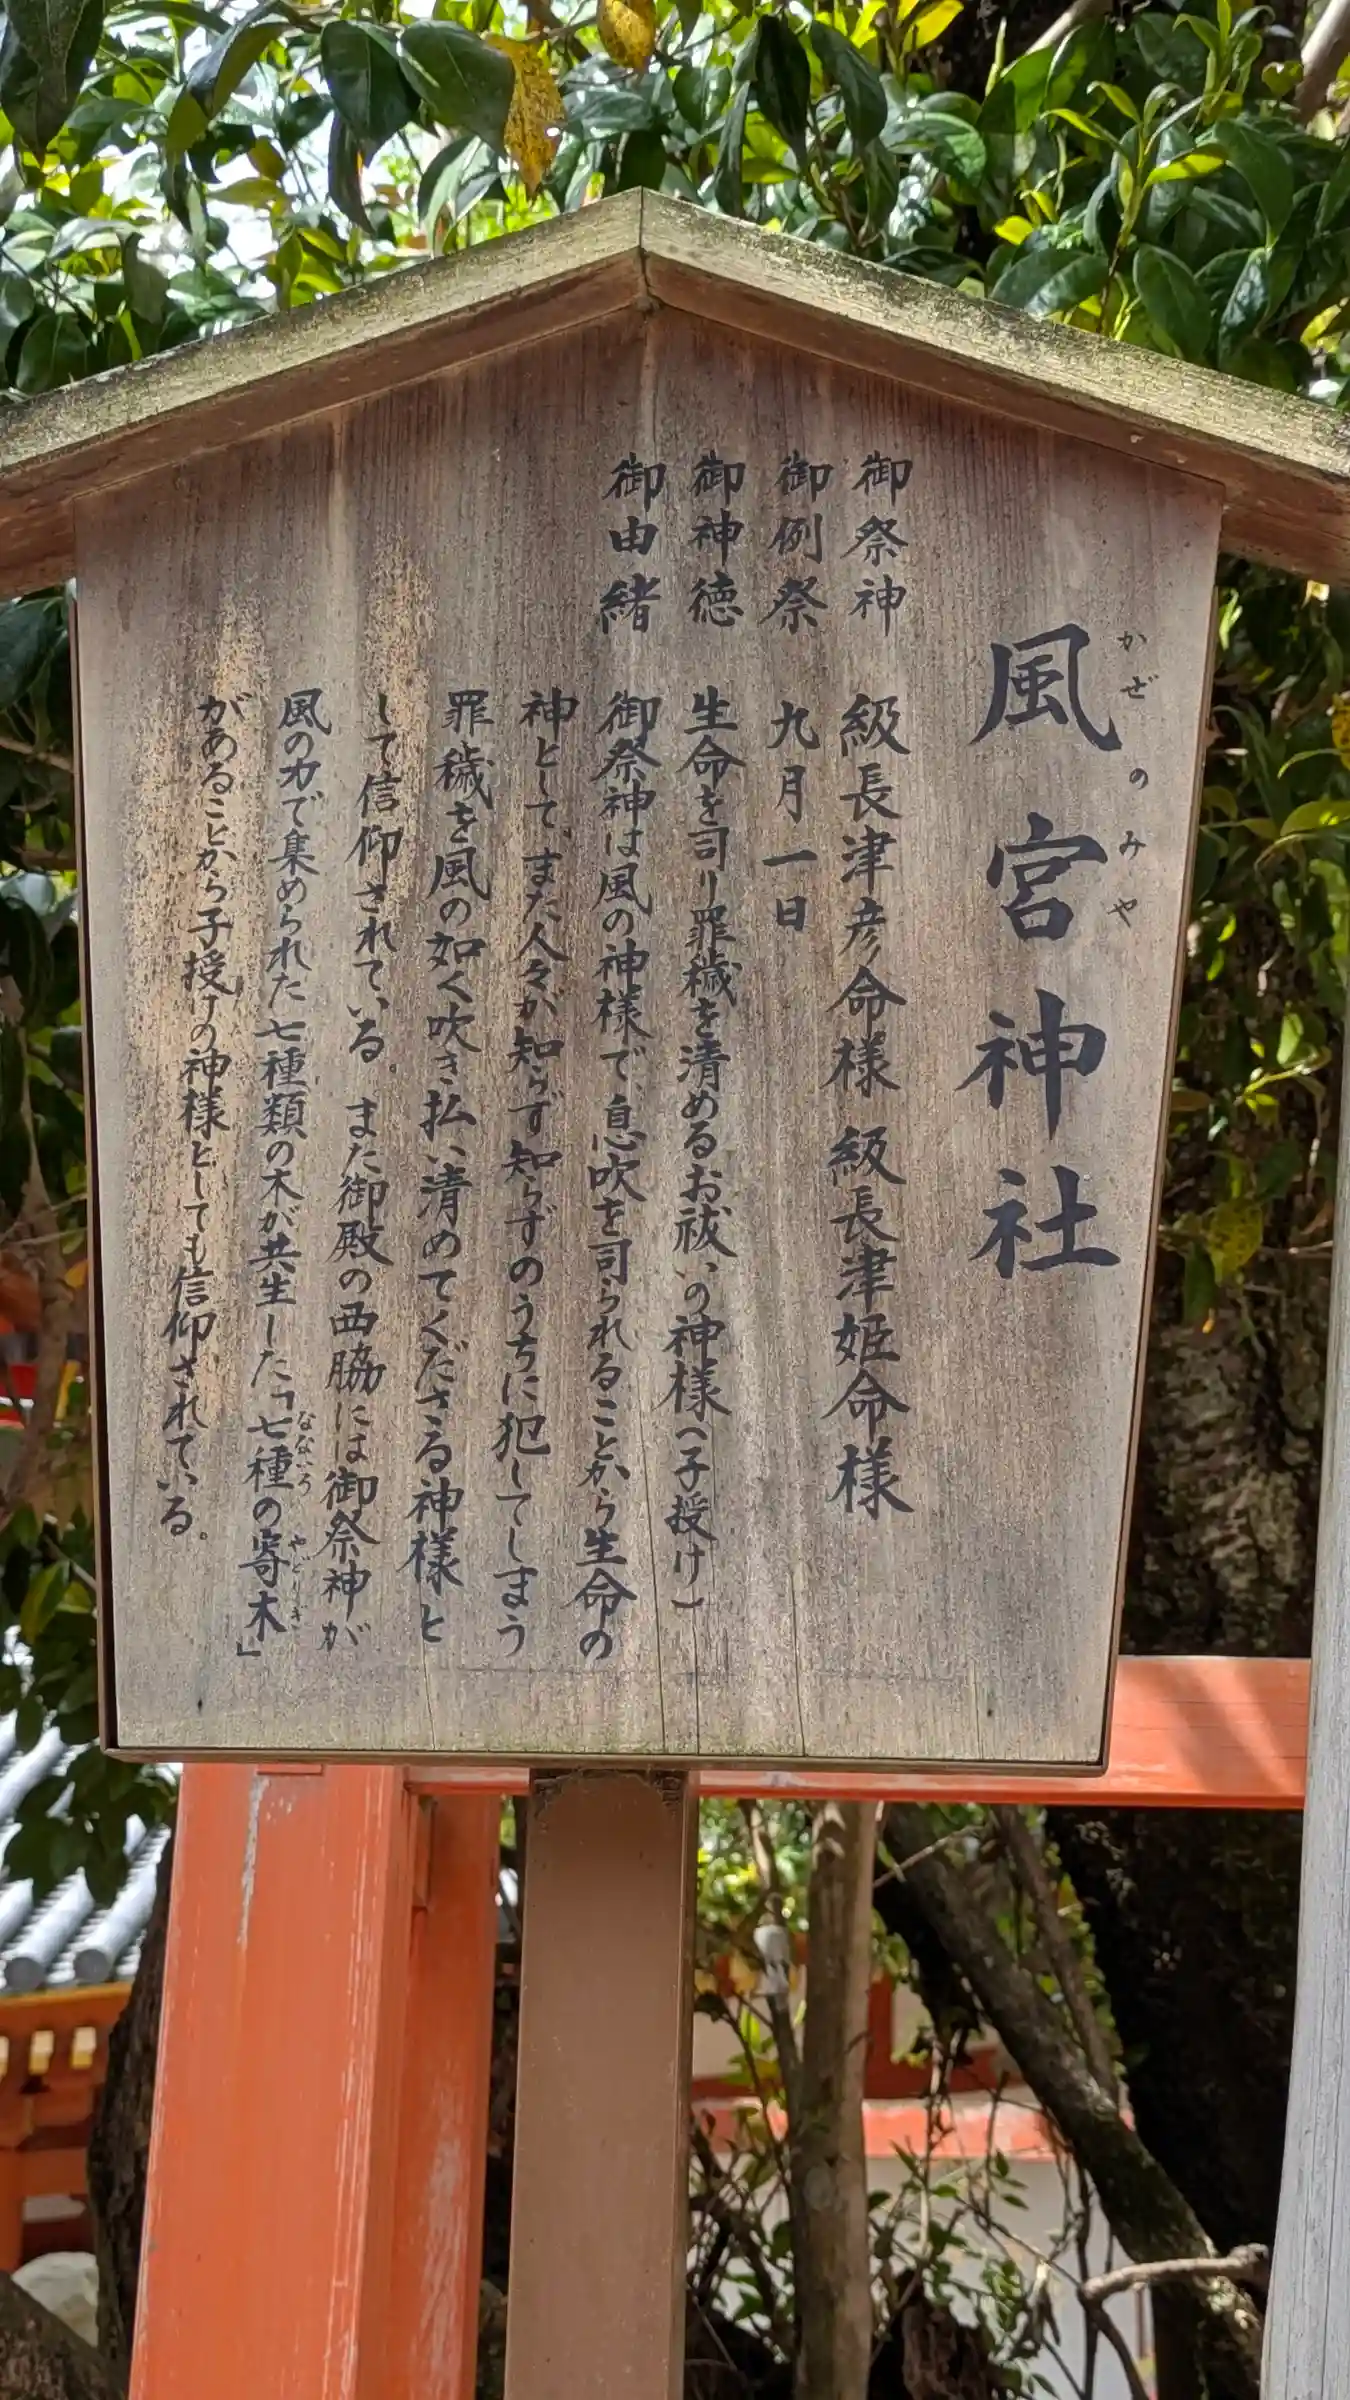 風宮神社
かぜのみや
御祭神 級長津彦命様 級長津姫命様
御例祭 九月一日
御神徳 生命を司り罪穢を清めるお祓いの神様(子授け)
御由緒 御祭神は風の神様で、息吹を司られることから生命の
神として、また人々が知らず知らずのうちに犯してしまう
罪穢を風の如く吹き払い清めてくださる神様と
して信仰されている。また御殿の西脇には御祭神が
風の力で集められた七種類の木が共生した「七種の寄木」
なないろ やどりき
があることから子授けの神様としても信仰されている。